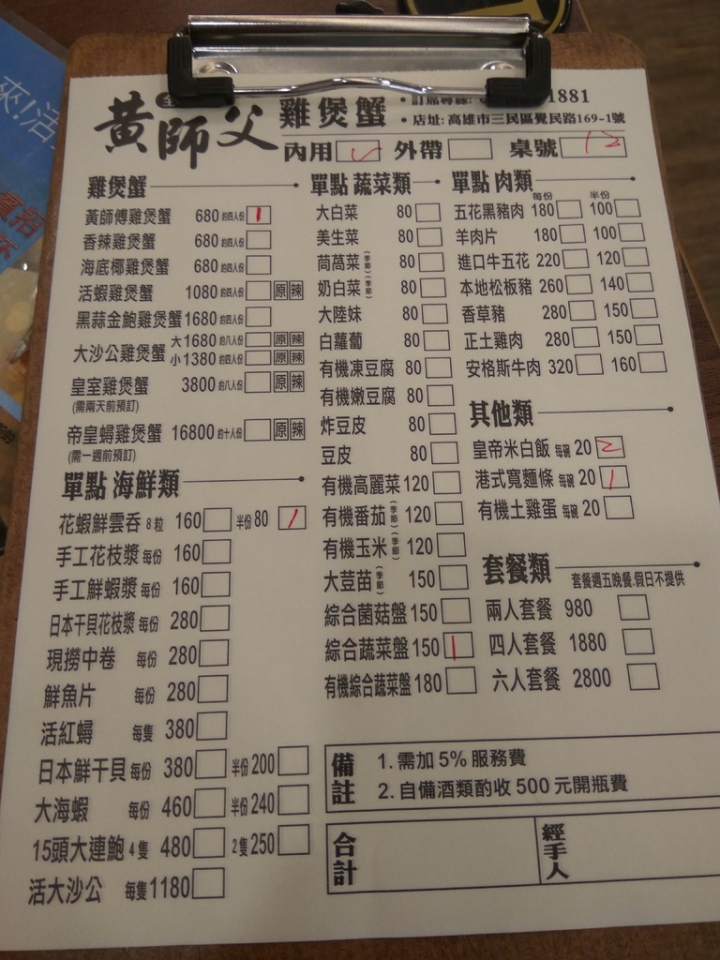 黃師父 雞煲蟹
1881
• 店址: 高雄市三民區覺民路169-1號
內用 ✓ 外帶 桌號 12
雞煲蟹
黃師傅雞煲蟹 680 約四人份 1
香辣雞煲蟹 680 約四人份
海底椰雞煲蟹 680 約四人份
活蝦雞煲蟹 1080 約四人份 原 辣
黑蒜金鮑雞煲蟹 1680 約四人份
大沙公雞煲蟹 大1680 約八人份 原 辣
小1380 約四人份 原 辣
皇室雞煲蟹 3800 約八人份 原 辣
(需兩天前預訂)
帝皇蟳雞煲蟹 16800 約十人份 原 辣
(需一週前預訂)
單點 海鮮類
花蝦鮮雲吞 8粒 160 半份 80 1
手工花枝漿 每份 160
手工鮮蝦漿 每份 160
日本干貝花枝漿 每份 280
現撈中卷 每份 280
鮮魚片 每份 280
活紅蟳 每隻 380
日本鮮干貝 每份 380 半份 200
大海蝦 每份 460 半份 240
15頭大連鮑 4隻 480 2隻 250
活大沙公 每隻 1180
單點 蔬菜類
大白菜 80
美生菜 80
茼萵菜(季節) 80
奶白菜(季節) 80
大陸妹 80
白蘿蔔 80
有機凍豆腐 80
有機嫩豆腐 80
炸豆皮 80
豆皮 80
有機高麗菜 120
有機番茄(季節) 120
有機玉米(季節) 120
大荳苗(季節) 150
綜合菌菇盤 150
綜合蔬菜盤 150 1
有機綜合蔬菜盤 180
單點 肉類
每份 半份
五花黑豬肉 180 100
羊肉片 180 100
進口牛五花 220 120
本地松板豬 260 140
香草豬 280 150
正土雞肉 280 150
安格斯牛肉 320 160
其他類
皇帝米白飯 每碗 20 2
港式寬麵條 每碗 20 1
有機土雞蛋 每碗 20
套餐類 套餐週五晚餐.假日不提供
兩人套餐 980
四人套餐 1880
六人套餐 2800
備註
1. 需加 5% 服務費
2. 自備酒類酌收 500 元開瓶費
合計
經手人